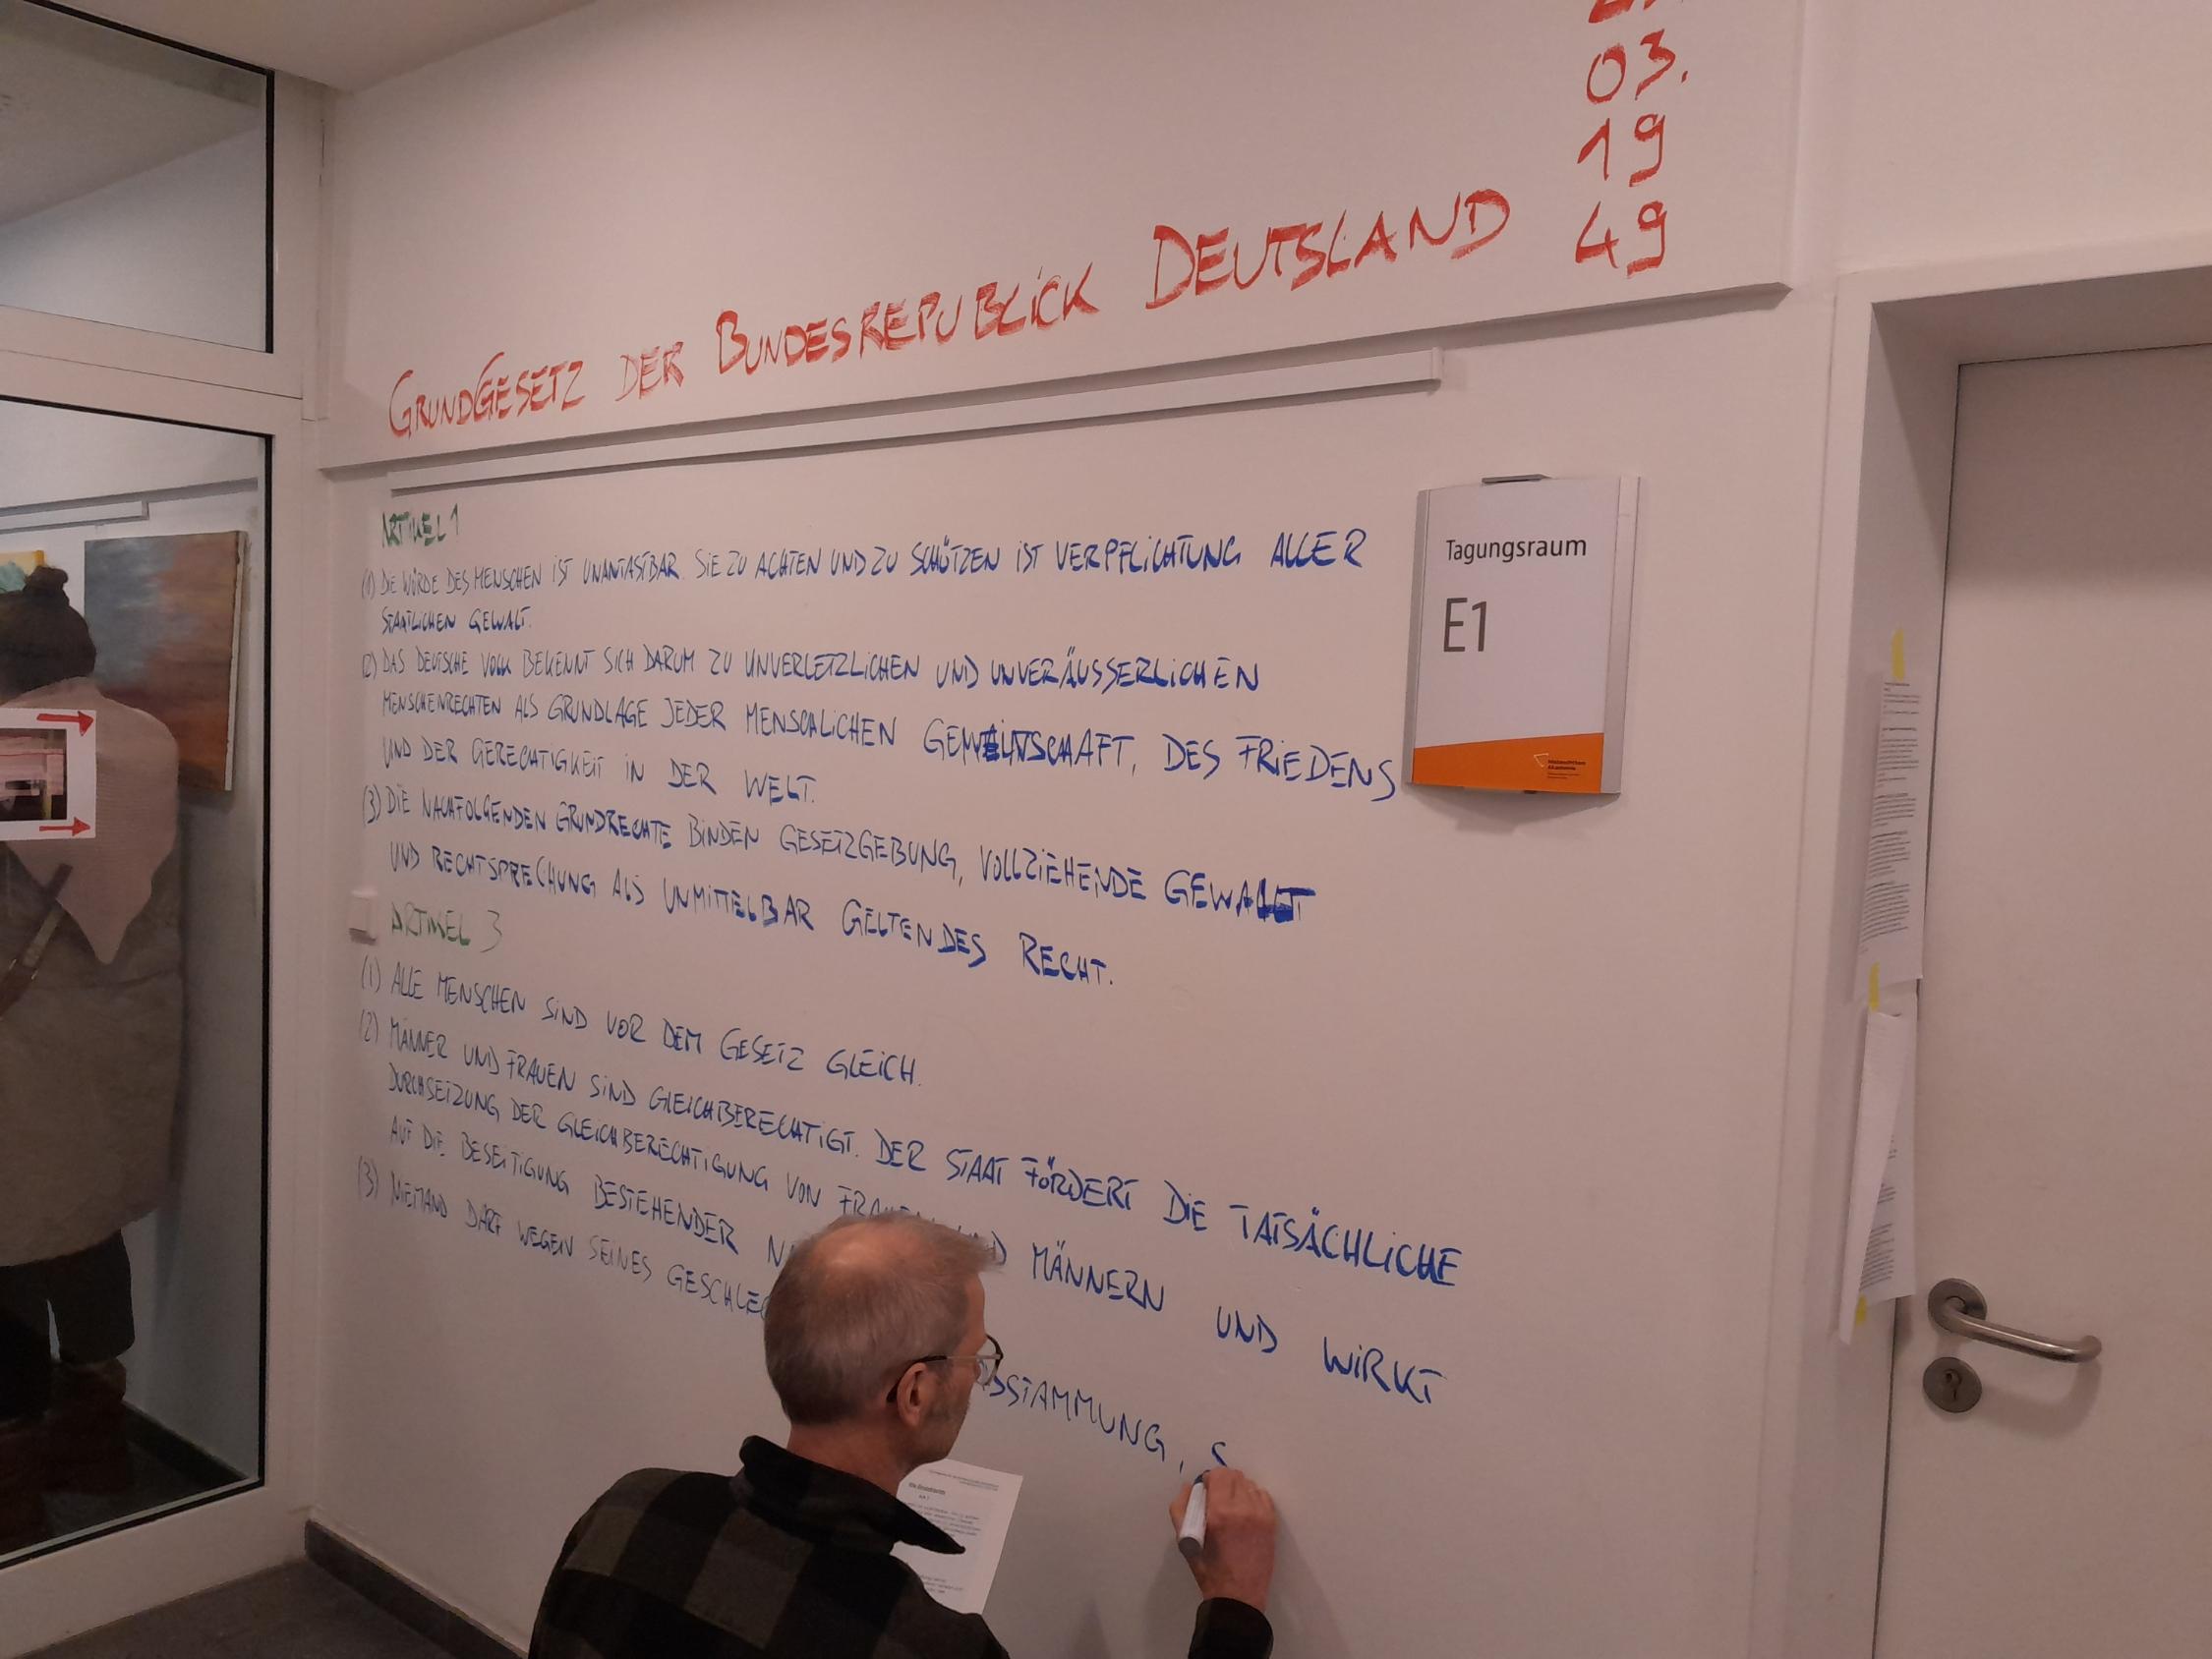 03.
19
49
GRUNDGESETZ DER BUNDESREPUBLICK DEUTSLAND
ARTIKEL 1
(1) DIE WÜRDE DES MENSCHEN IST UNANTASTBAR. SIE ZU ACHTEN UND ZU SCHÜTZEN IST VERPFLICHTUNG ALLER
STAATLICHEN GEWALT.
(2) DAS DEUTSCHE VOLK BEKENNT SICH DARUM ZU UNVERLETZLICHEN UND UNVERÄUSSERLICHEN
MENSCHENRECHTEN ALS GRUNDLAGE JEDER MENSCHLICHEN GEMEINSCHAFT, DES FRIEDENS
UND DER GERECHTIGKEIT IN DER WELT.
(3) DIE NACHFOLGENDEN GRUNDRECHTE BINDEN GESETZGEBUNG, VOLLZIEHENDE GEWALT
UND RECHTSPRECHUNG ALS UNMITTELBAR GELTENDES RECHT.
ARTIKEL 3
(1) ALLE MENSCHEN SIND VOR DEM GESETZ GLEICH.
(2) MÄNNER UND FRAUEN SIND GLEICHBERECHTIGT. DER STAAT FÖRDERT DIE TATSÄCHLICHE
DURCHSETZUNG DER GLEICHBERECHTIGUNG VON FRAUEN UND MÄNNERN UND WIRKT
AUF DIE BESEITIGUNG BESTEHENDER
(3) NIEMAND DARF WEGEN SEINES GESCHLEC
BSTAMMUNG, S
Tagungsraum
E1